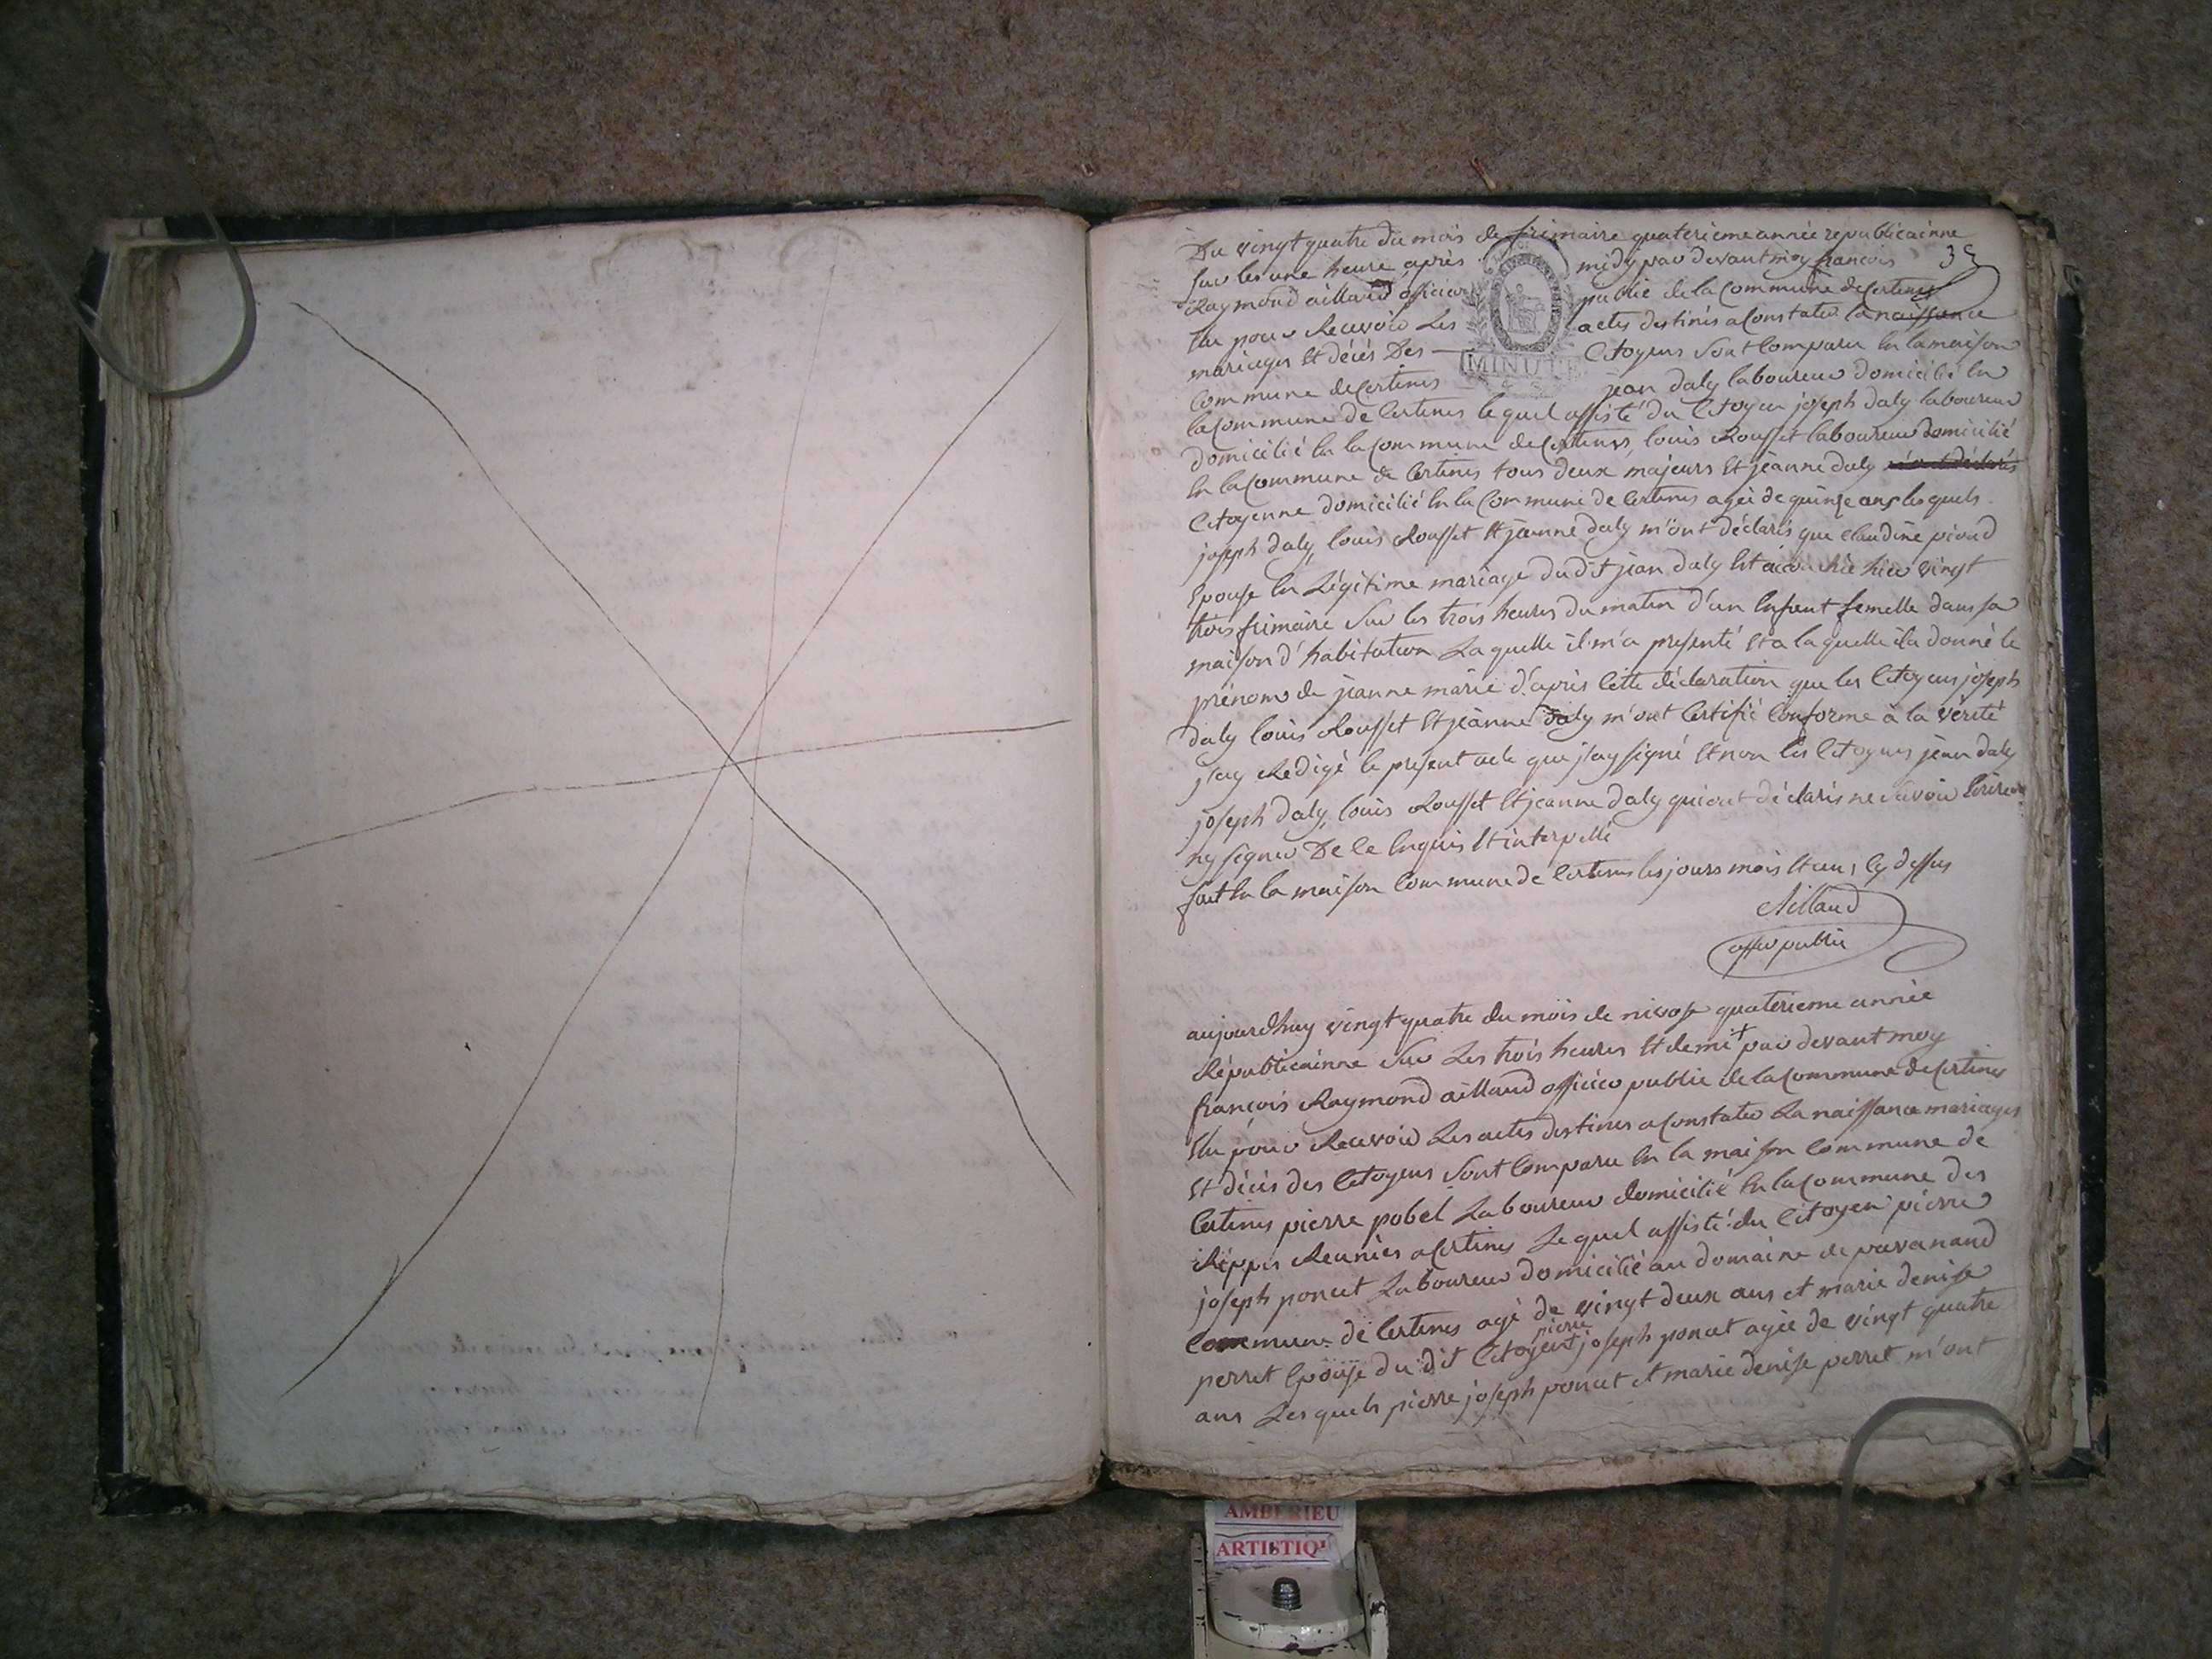 Du vingt quatre du mois de frimaire quaterieme année republicainne
sur les une heure après midy par devant moy francois
35
Raymond aillaud officier public de la Commune de Certines
Elu pour Recevoir Les actes destinés a Constater la naissance
mariages Et décés Des Citoyens sont Comparu En la maison
MINUTE
Commune de Certines jean daly laboureur domicilié En
la Commune de Certines le quel assisté du Citoyen joseph daly laboureur
domicilié En la Commune de Certines, louis Rousset laboureur domicilié
En la Commune de Certines tous deux majeurs Et jeanne daly
Citoyenne domicilié En la Commune de Certines agée de quinse ans les quels
joseph daly, louis Rousset Et jeanne daly m'ont déclarés que Claudine
Epouse En Légitime mariage du dit jean daly Est accouchée hier vingt
trois frimaire sur les trois heures du matin d'un Enfent femelle dans sa
maison d'habitation La quelle il m'a presenté Et a la quelle il a donné le
prénom de jeanne marie d'après Cette déclaration que les Citoyens joseph
daly louis Rousset Et jeanne daly m'ont Certifié Conforme à la vérité
j'ay Redigé le présent acte que j'ay signé Et non les Citoyens jean daly
joseph daly, louis Rousset Et jeanne daly qui ont déclarés ne savoir Ecrire
ny signer De Ce Enquis Et interpellé
fait En la maison Commune de Certines les jours mois Et an Cy dessus
Aillaud
offier public
aujourdhuy vingt quatre du mois de nivose quaterieme année
Républicainne sur Les trois heures Et demi + par devant moy
francois Raymond aillaud officier public de la Commune de Certines
Elu pour Recevoir Les actes destinés a Constater La naissance mariages
Et décés des Citoyens sont Comparu En la maison Commune de
Certines pierre pobel Laboureur domicilié En la Commune des
Rippes Reunies a Certines Le quel assisté du Citoyen pierre
joseph poncet Laboureur domicilié au domaine de pavanand
Commune de Certines agé de vingt deux ans et marie denise
perret Epouse du dit Citoyen pierre joseph poncet agée de vingt quatre
ans Les quels pierre joseph poncet et marie denise perret m'ont
AMBERIEU
ARTISTIQ